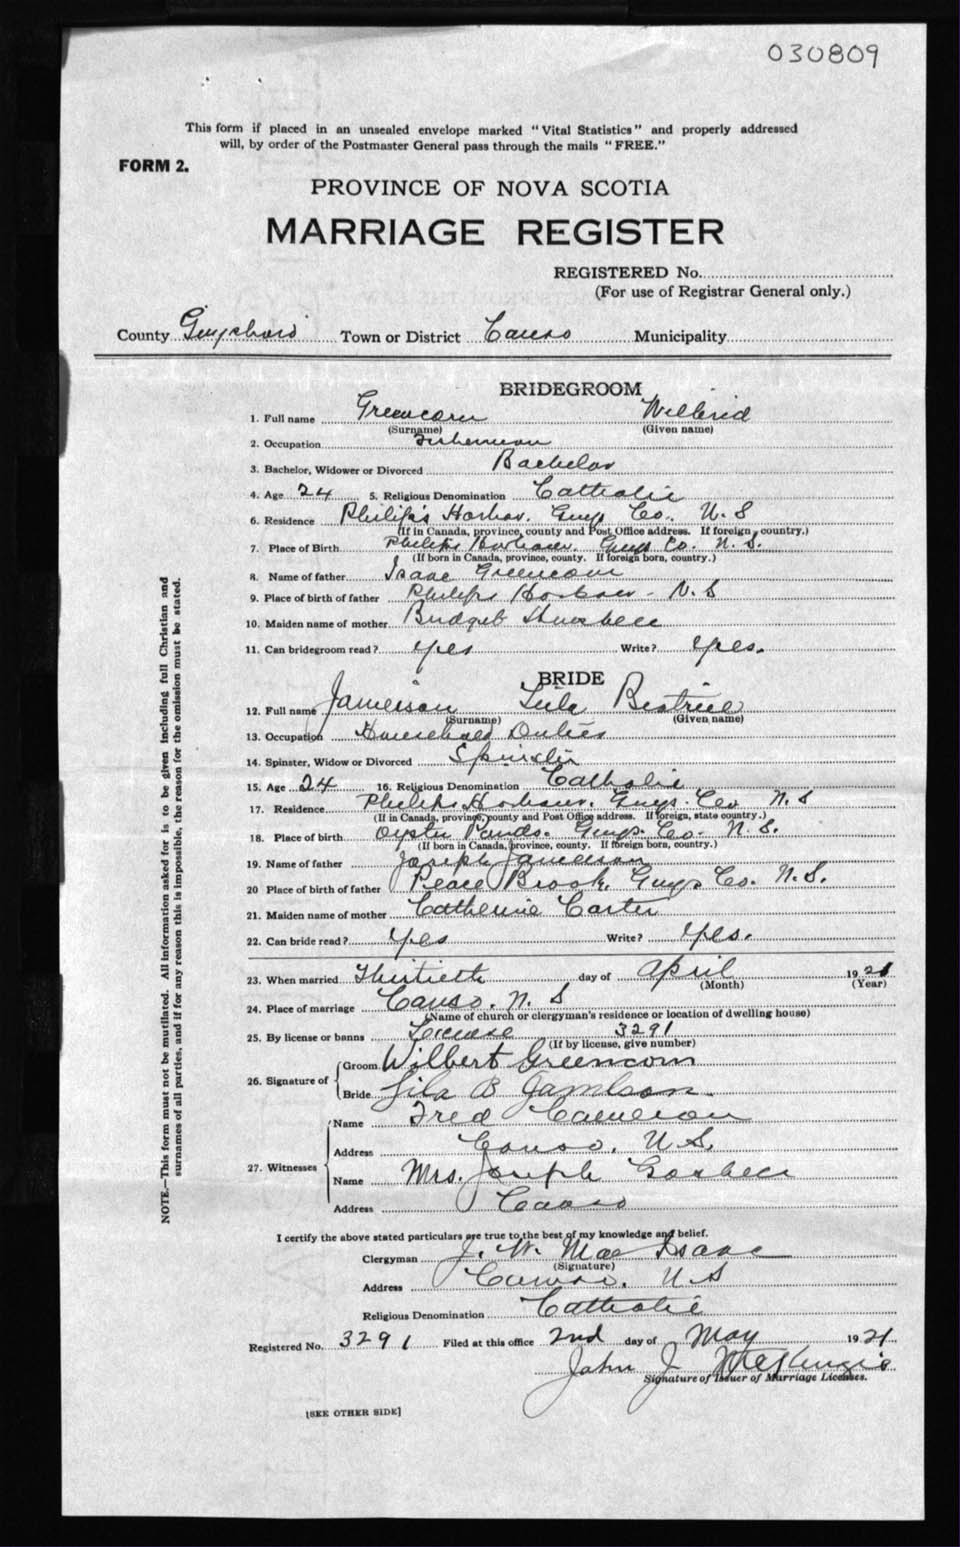 030809
This form if placed in an unsealed envelope marked "Vital Statistics" and properly addressed
will, by order of the Postmaster General pass through the mails "FREE."
FORM 2.
PROVINCE OF NOVA SCOTIA
MARRIAGE REGISTER
REGISTERED No.
(For use of Registrar General only.)
County Guysboro Town or District Canso Municipality
BRIDEGROOM
1. Full name Greencorn Wilbrid
(Surname) (Given name)
2. Occupation Fisherman
3. Bachelor, Widower or Divorced Bachelor
4. Age 24 5. Religious Denomination Catholic
6. Residence Philip's Harbor. Guys Co. N. S
(If in Canada, province, county and Post Office address. If foreign, country.)
7. Place of Birth Philips Harbour. Guys Co. N. S.
(If born in Canada, province, county. If foreign born, country.)
8. Name of father Isaac Greencorn
9. Place of birth of father Philips Harbour - N. S
10. Maiden name of mother Bridget
11. Can bridegroom read? yes Write? yes.
BRIDE
12. Full name Jamieson Beatrice
(Surname) (Given name)
13. Occupation Household Duties
14. Spinster, Widow or Divorced Spinster
15. Age 24 16. Religious Denomination Catholic
17. Residence Philips Harbour. Guys. Co N. S
(If in Canada, province, county and Post Office address. If foreign, state country.)
18. Place of birth Oyster Ponds. Guys. Co. N. S.
(If born in Canada, province, county. If foreign born, country.)
19. Name of father Joseph Jamieson
20 Place of birth of father Peace Brook, Guys Co. N. S.
21. Maiden name of mother Catherine Carter
22. Can bride read? Yes Write? yes.
23. When married Thirtieth day of April 1921
(Month) (Year)
24. Place of marriage Canso. N. S
(Name of church or clergyman's residence or location of dwelling house)
25. By license or banns License 3291
(If by license, give number)
26. Signature of
Groom Wilbert Greencorn
Bride Lila B Jamieson.
27. Witnesses
Name Fred Cameron
Address Canso, N. S.
Name Mrs. Joseph
Address Canso
I certify the above stated particulars are true to the best of my knowledge and belief.
Clergyman J. W. MacIsaac
(Signature)
Address Canso. N. S
Religious Denomination Catholic
Registered No. 3291 Filed at this office 2nd day of May 1921
John J McKenzie
Signature of Issuer of Marriage Licenses.
[SEE OTHER SIDE]
NOTE.—This form must not be mutilated. All information asked for is to be given including full Christian and
surnames of all parties, and if for any reason this is impossible, the reason for the omission must be stated.